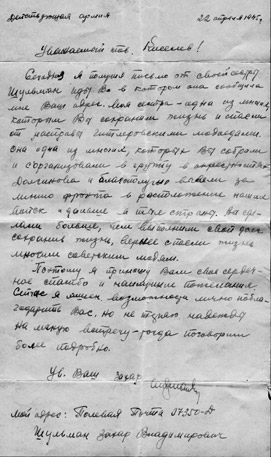 Действующая армия 22 апреля 1945 г.
Уважаемый тов. Киселев!
Сегодня я получил письмо от своей сестры
Шульман Иды Вл в котором она сообщила
мне Ваш адрес. Моя сестра - одна из многих
которым Вы сохранили жизнь и спасли
от расправы гитлеровскими людоедами.
Она одна из многих, которых Вы собрали
и сорганизовали в группу в окрестностях
Долгиново и благополучно вывели за
линию фронта в расположение наших
войск и дальше в тыл страны. Вы сде-
лали больше, чем выполнили свой долг
сохранив жизнь, вернее спасли жизнь
многим советским людям.
Поэтому я приношу Вам свое сердеч-
ное спасибо и наилучшие пожелания.
Сейчас я лишен возможности лично побла-
годарить Вас. Но не теряю надежды
на личную встречу - тогда поговорим
более подробно.
Ув. Ваш Захар
Мой адрес: Полевая Почта 27350-Д
Шульман Захар Владимирович